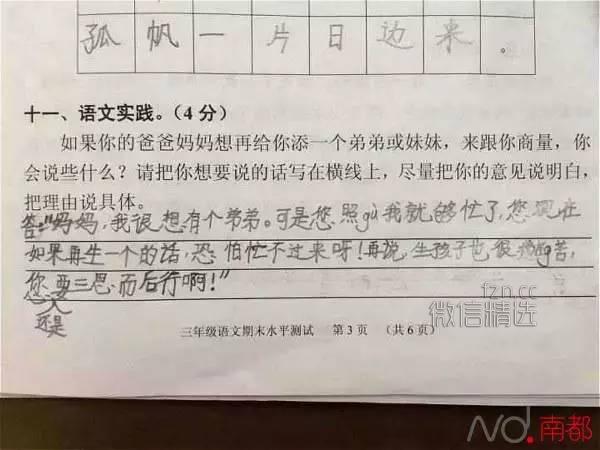 孤帆一片日边来。
十一、语文实践。（4分）
如果你的爸爸妈妈想再给你添一个弟弟或妹妹，来跟你商量，你
会说些什么？请把你想要说的话写在横线上，尽量把你的意见说明白，
把理由说具体。
答："妈妈，我很想有个弟弟。可是您照gù我就够忙了，您现在
如果再生一个的话，恐怕忙不过来呀！再说，生孩子也很苦，
您要三思而后行啊！"
还是
fzn.cc
微信精选
三年级语文期末水平测试 第3页 （共6页）
nd.南都